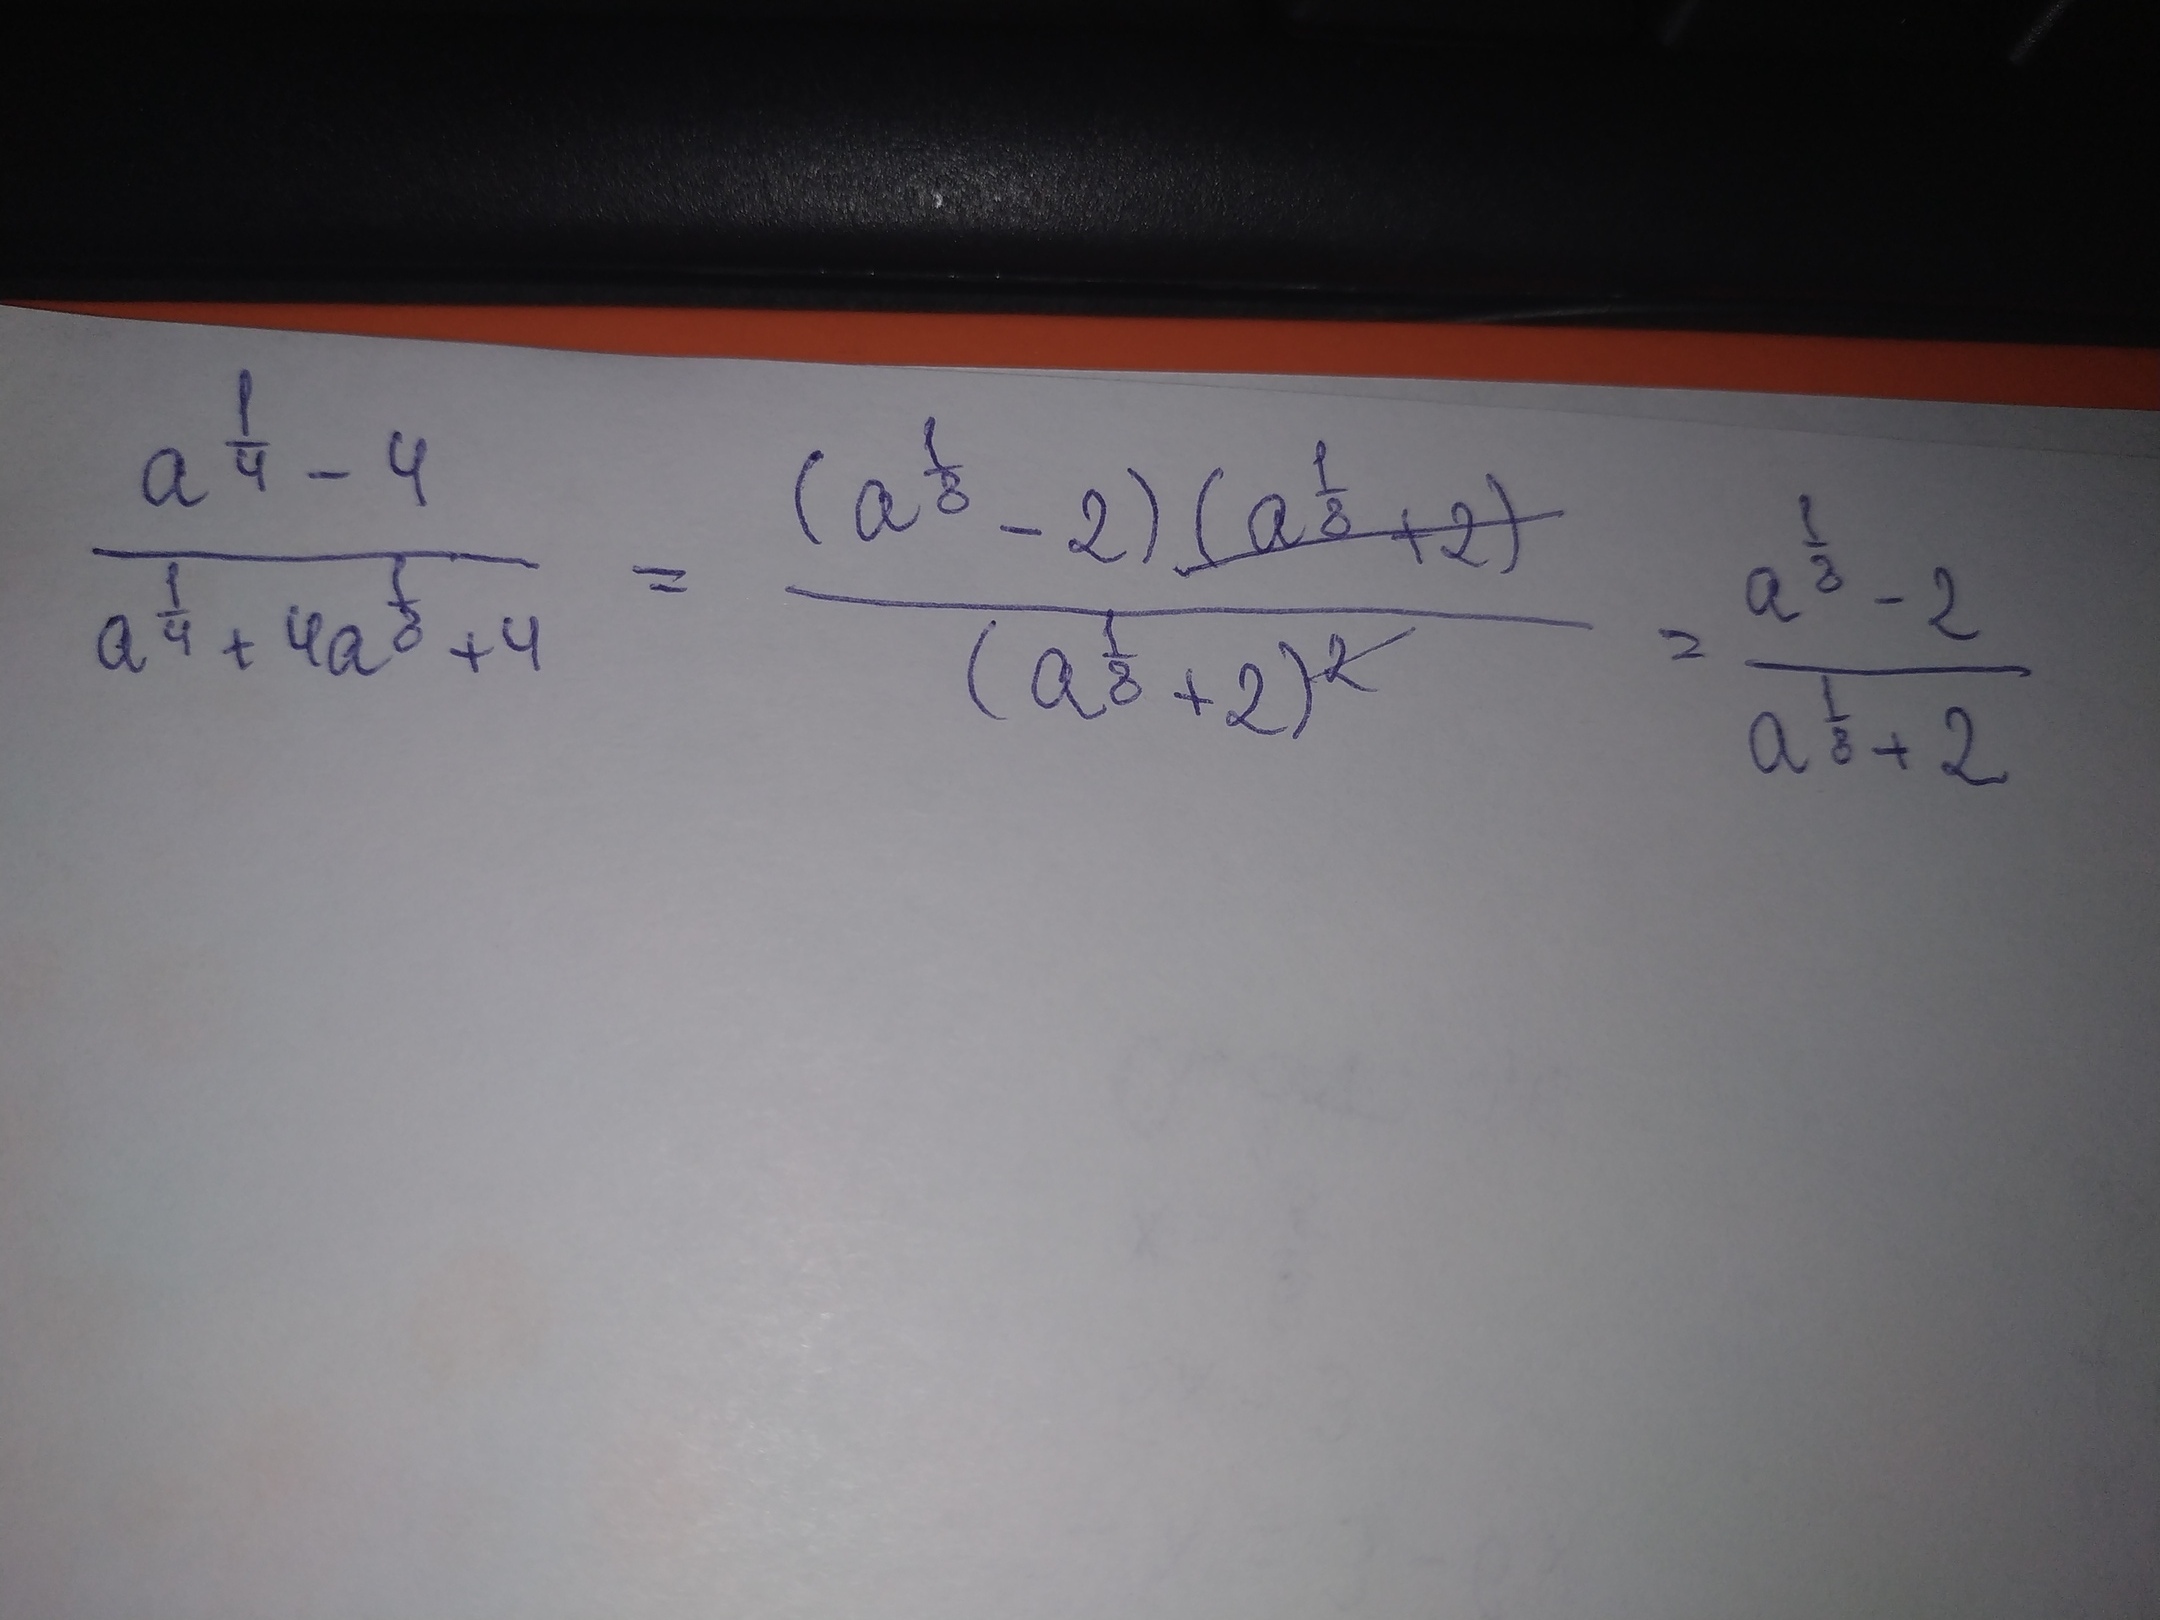 \frac{a^{\frac{1}{4}} - 4}{a^{\frac{1}{4}} + 4a^{\frac{1}{8}} + 4} = \frac{(a^{\frac{1}{8}} - 2)(a^{\frac{1}{8}} + 2)}{(a^{\frac{1}{8}} + 2)^2} = \frac{a^{\frac{1}{8}} - 2}{a^{\frac{1}{8}} + 2}